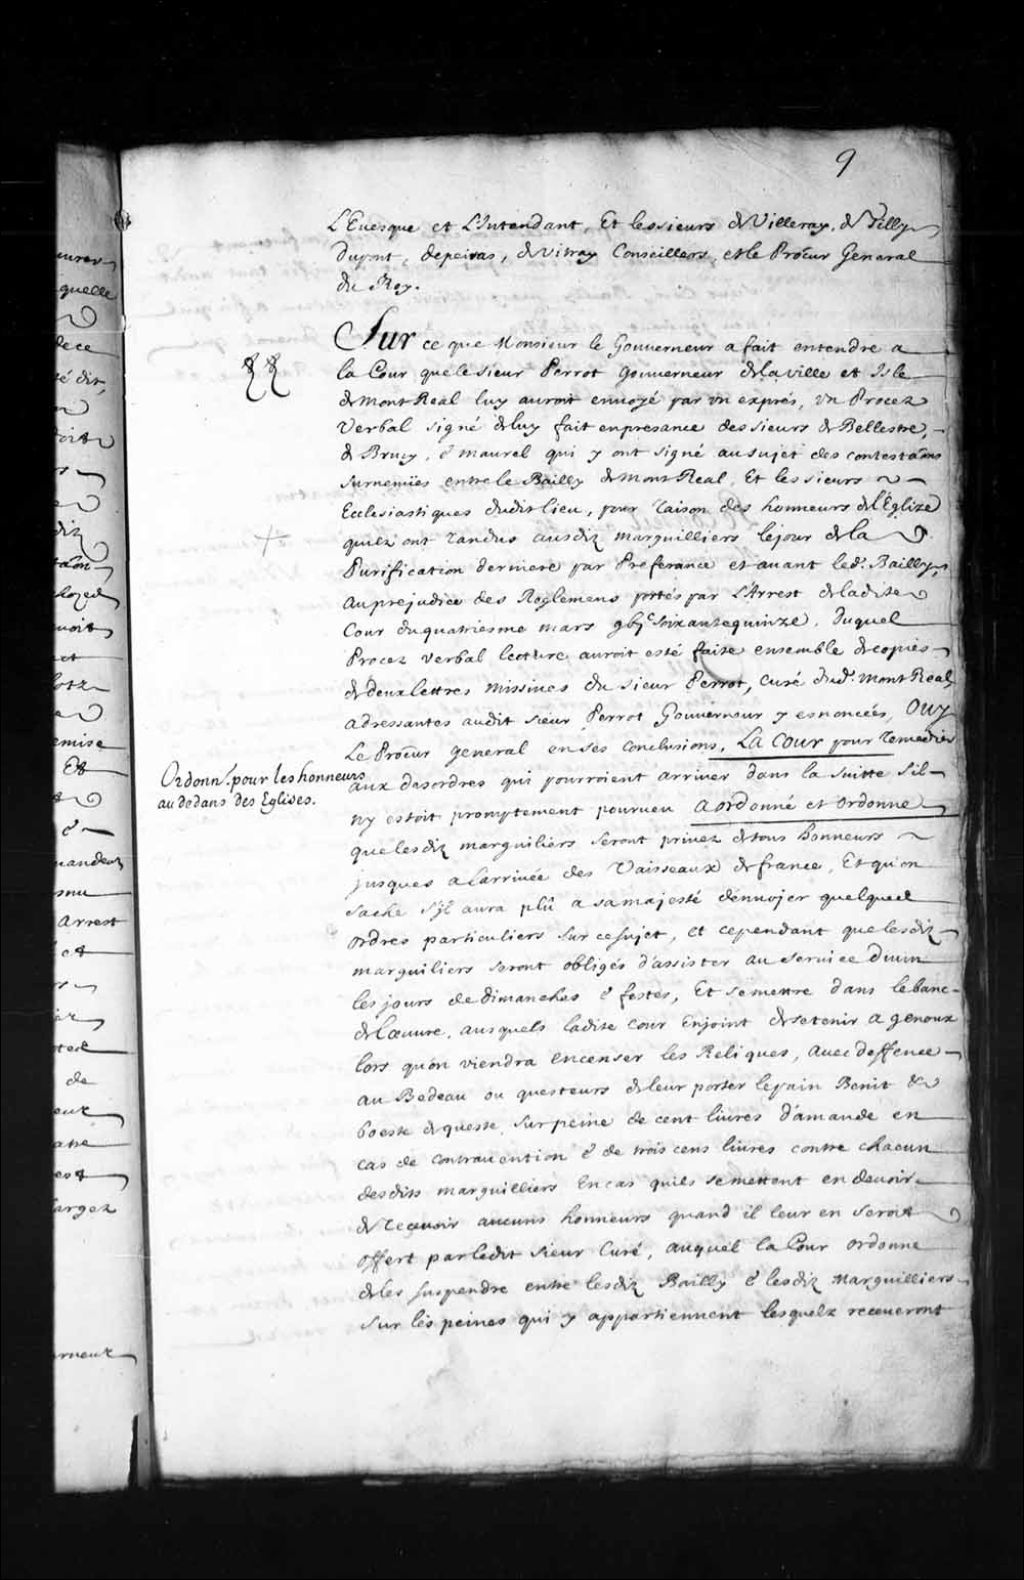 9
L'Euesque et L'Intendant, Et les sieurs de Villeray, de Tilly
Dupont, depeiras, de Vitray Conseillers, et le Procur General
du Roy.
Sur ce que Monsieur le Gouuerneur a fait entendre a
la Cour que le sieur Perrot gouuerneur de la ville et Isle
de Mont Real luy auroit enuoyé par vn exprés, vn Procez
Verbal signé de luy fait en presance des sieurs de Bellestre,
de Brucy, & maurel qui y ont signé au sujet des contestaons
suruenües entre le Bailly de Mont Real, Et les sieurs
Ecclesiastiques dudit lieu, pour raison des honneurs de l'Eglize
quilz ont randus ausdiz marguilliers le jour de la
Purification derniere par Preferance et auant led. Bailly,
au prejudice des Reglemens portés par L'Arrest de ladite
Cour du quatriesme mars gbjc soixante quinze, Duquel
Procez verbal lecture auroit esté faite ensemble de copies
de deux lettres missiues du sieur Perrot, curé dud. mont Real,
adressantes audit sieur Perrot Gouuerneur y esnoncées, Ouy
Le Procur general en ses conclusions, La Cour pour remedier
Ordonn. pour les honneurs
au dedans des Eglises.
aux desordres qui pourroient arriuer dans la suitte s'il
ny estoit promptement pourueu a ordonné et ordonne
que lesdiz marguiliers seront priuez de tous honneurs
jusques a larriuée des Vaisseaux de france, Et qu'on
sache s'jl aura plû a sa majesté denuojer quelques
ordres particuliers sur ce sujet, et cependant que lesdiz
marguiliers seront obligés d'assister au seruice diuin
les jours de dimanches & festes, Et se mettre dans le banc
de l'œuure, ausquels ladite cour Enjoint de se tenir a genoux
lors qu'on viendra encenser les Reliques, auec deffence
au Bedeau ou questeurs de leur porter le pain Benit &
boeste de queste, sur peine de cent liures d'amande en
cas de contrauention & de trois cens liures contre chacun
desdits marguilliers En cas quils se mettent en deuoir
de receuoir aucuns honneurs quand il leur en seroit
offert par ledit sieur Curé, auquel la Cour ordonne
de les suspendre entre lesdiz Bailly & lesdiz Marguilliers
sur les peines qui y appartiennent lesquelz receueront